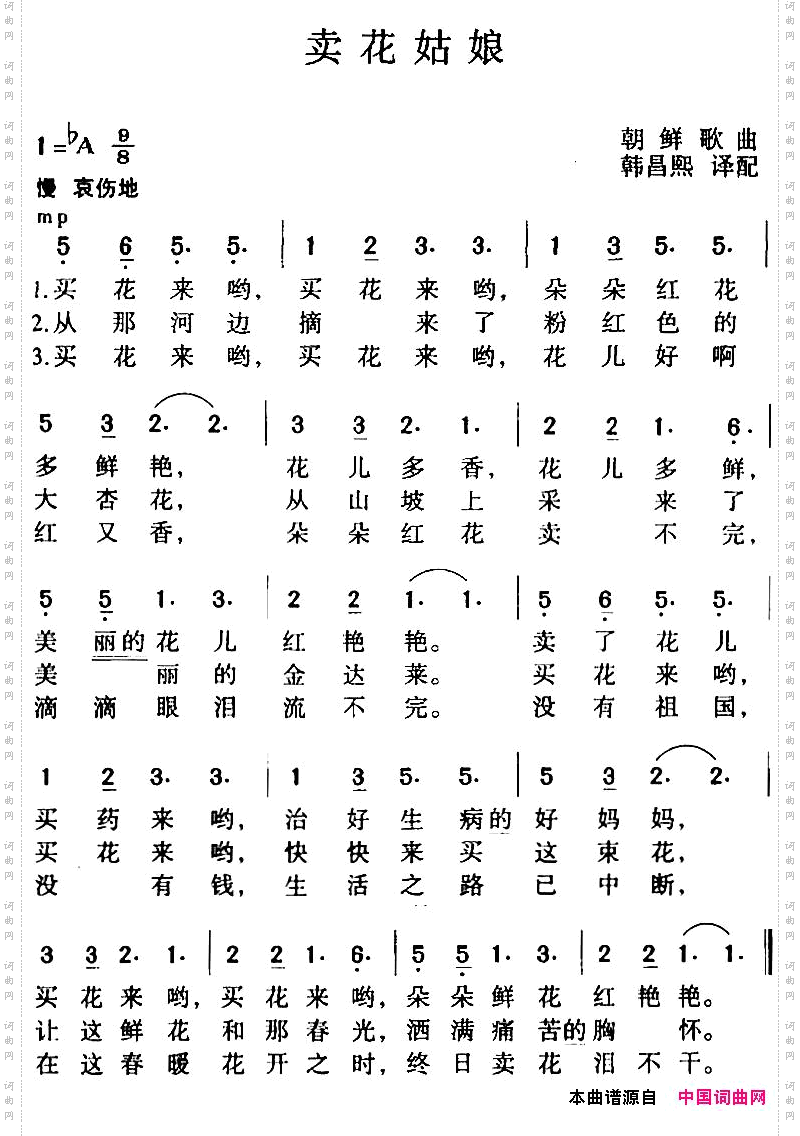 卖花姑娘
1=♭A 9/8
朝鲜歌曲
韩昌熙 译配
慢 哀伤地
mp
5 6 5. 5. | 1 2 3. 3. | 1 3 5. 5. |
1.买花来哟，买花来哟，朵朵红花
2.从那河边摘来了粉红色的
3.买花来哟，买花来哟，花儿好啊
5 3 2. 2. | 3 3 2. 1. | 2 2 1. 6. |
多鲜艳，花儿多香，花儿多鲜，
大杏花，从山坡上采来了
红又香，朵朵红花卖不完，
5 5 1. 3. | 2 2 1. 1. | 5 6 5. 5. |
美丽的花儿红艳艳。卖了花儿
美丽的金达莱。买花来哟，
滴滴眼泪流不完。没有祖国，
1 2 3. 3. | 1 3 5. 5. | 5 3 2. 2. |
买药来哟，治好生病的好妈妈，
买花来哟，快快来买这束花，
没有钱，生活之路已中断，
3 3 2. 1. | 2 2 1. 6. | 5 5 1. 3. | 2 2 1. 1. ‖
买花来哟，买花来哟，朵朵鲜花红艳艳。
让这鲜花和那春光，洒满痛苦的胸怀。
在这春暖花开之时，终日卖花泪不干。
本曲谱源自 中国词曲网